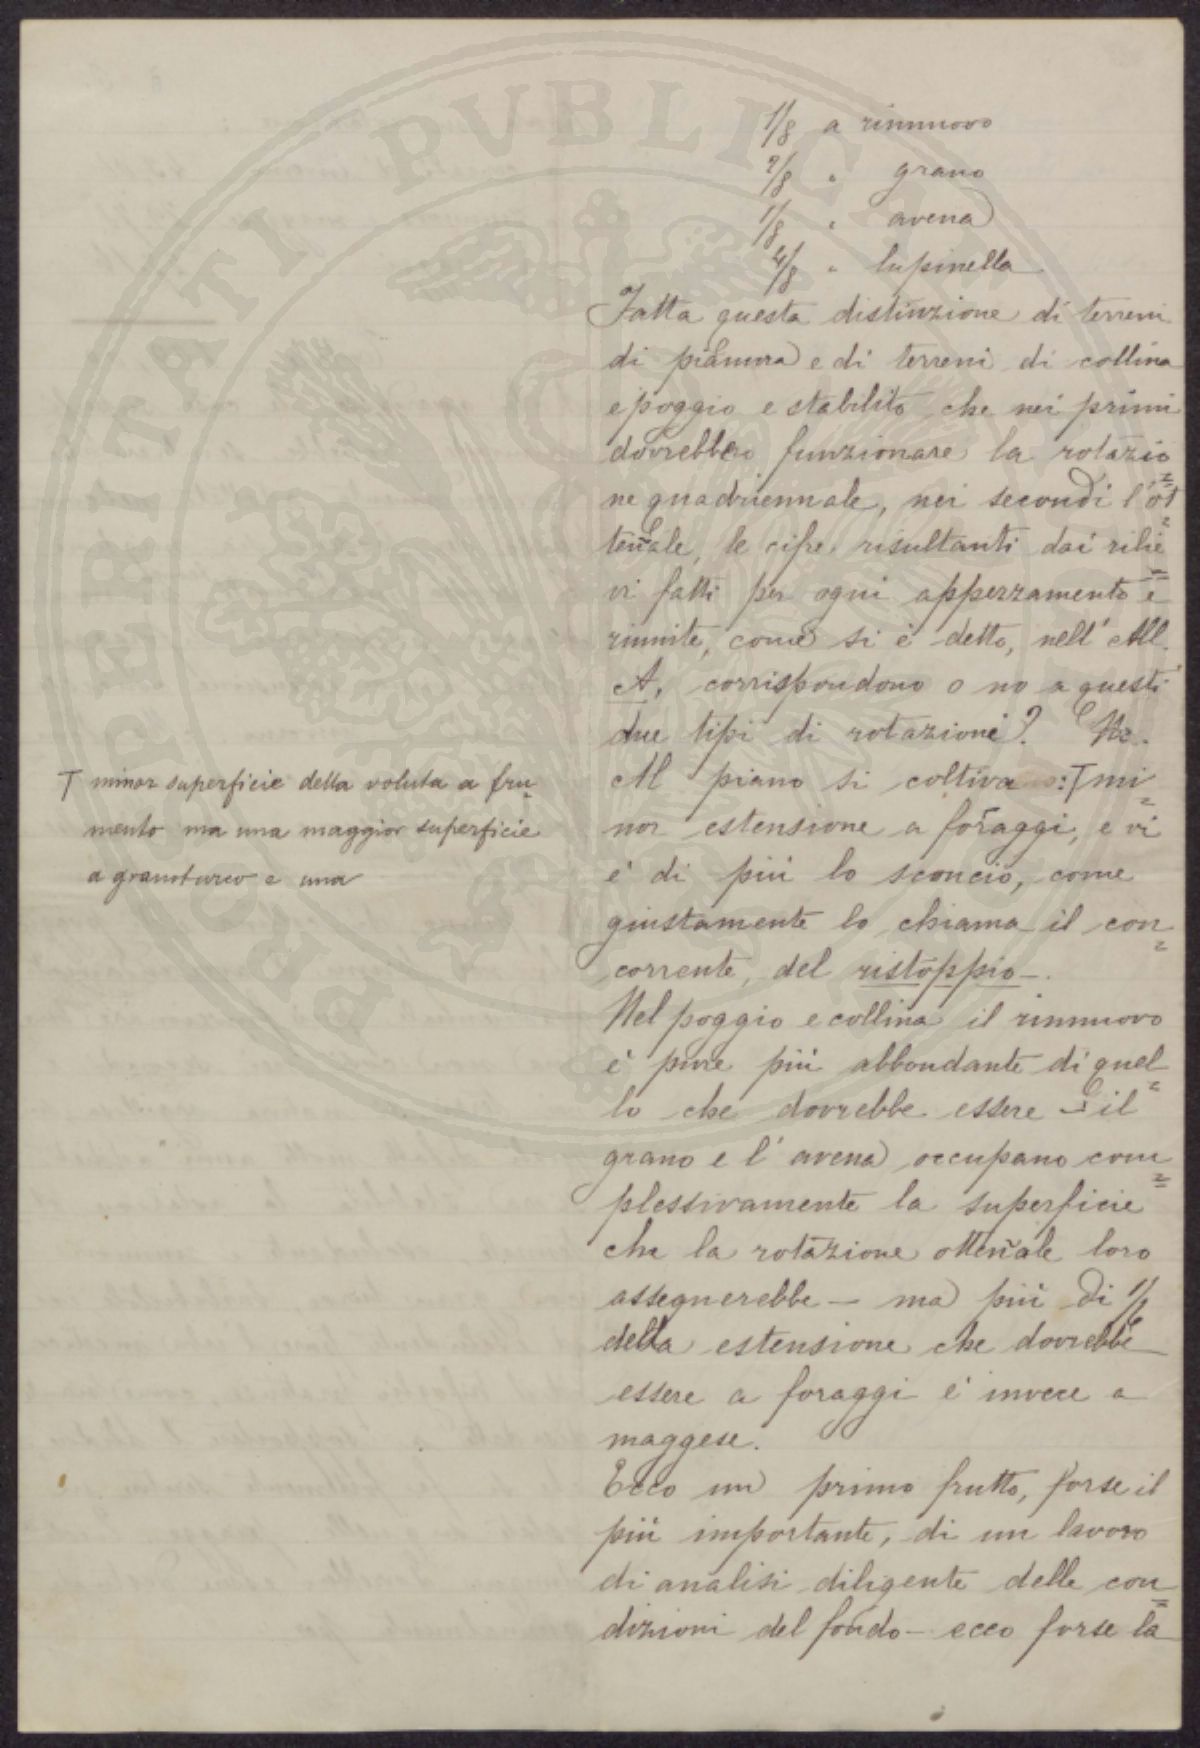 1/8 a rinnuovo
2/8 " grano
1/8 " avena
4/8 " lupinella
Fatta questa distinzione di terreni
di pianura e di terreni di collina
e poggio e stabilito che nei primi
dovrebbero funzionare la rotazio
ne quadriennale, nei secondi l'ot
tenñale, le cifre risultanti dai rilie
vi fatti per ogni appezzamento e
riunite, come si è detto, nell'All.
A, corrispondono o no a questi
due tipi di rotazione? No.
Al piano si coltiva T mi
nor estensione a foraggi, e vi
è di più lo sconcio, come
giustamente lo chiama il con
corrente, del ristoppio.
Nel poggio e collina il rinnuovo
è pure più abbondante di quel
lo che dovrebbe essere - il
grano e l'avena occupano com
plessivamente la superficie
che la rotazione ottenñale loro
assegnerebbe - ma più di
della estensione che dovrebbe
essere a foraggi è invece a
maggese.
Ecco un primo frutto, forse il
più importante, di un lavoro
di analisi diligente delle con
dizioni del fondo - ecco forse la
T minor superficie della voluta a fru-
mento ma una maggior superficie
a granoturco e una
PUBLICAE
PROSPERITATI